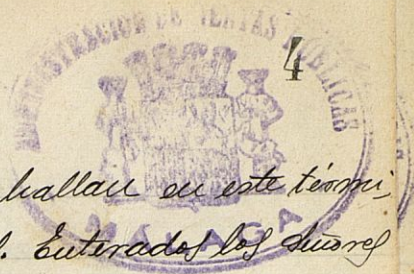 ADMINISTRACION DE RENTAS PUBLICAS
4
hallan en este térmi-
l. Enterados los Señores
MALAGA